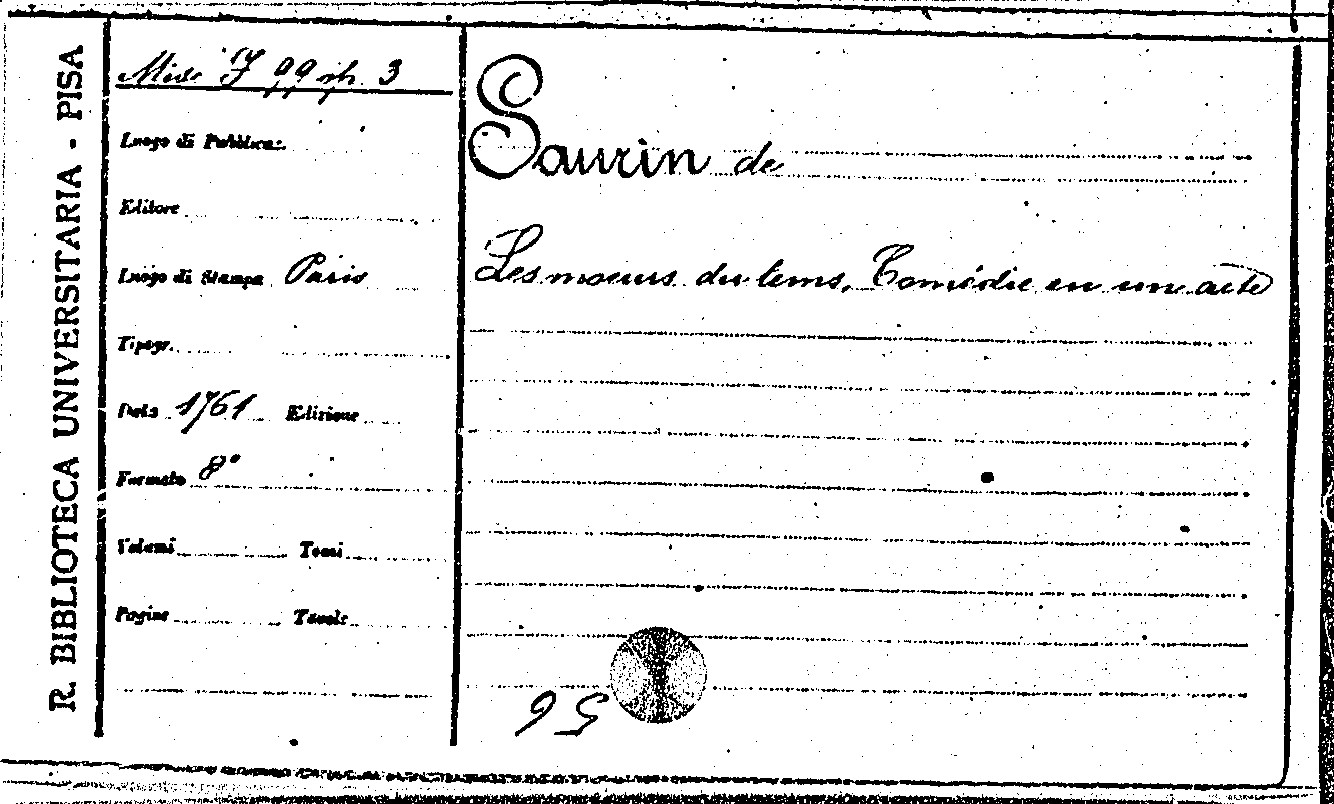 R. BIBLIOTECA UNIVERSITARIA - PISA
Misc. 99 3
Luogo di Pubblicaz.
Editore
Luogo di Stampa Paris
Tipogr.
Data 1761 Edizione
Formato 8°
Volumi Tomi
Pagine Tavole
Saurin de
Les moeurs du tems, Comédie en une acte